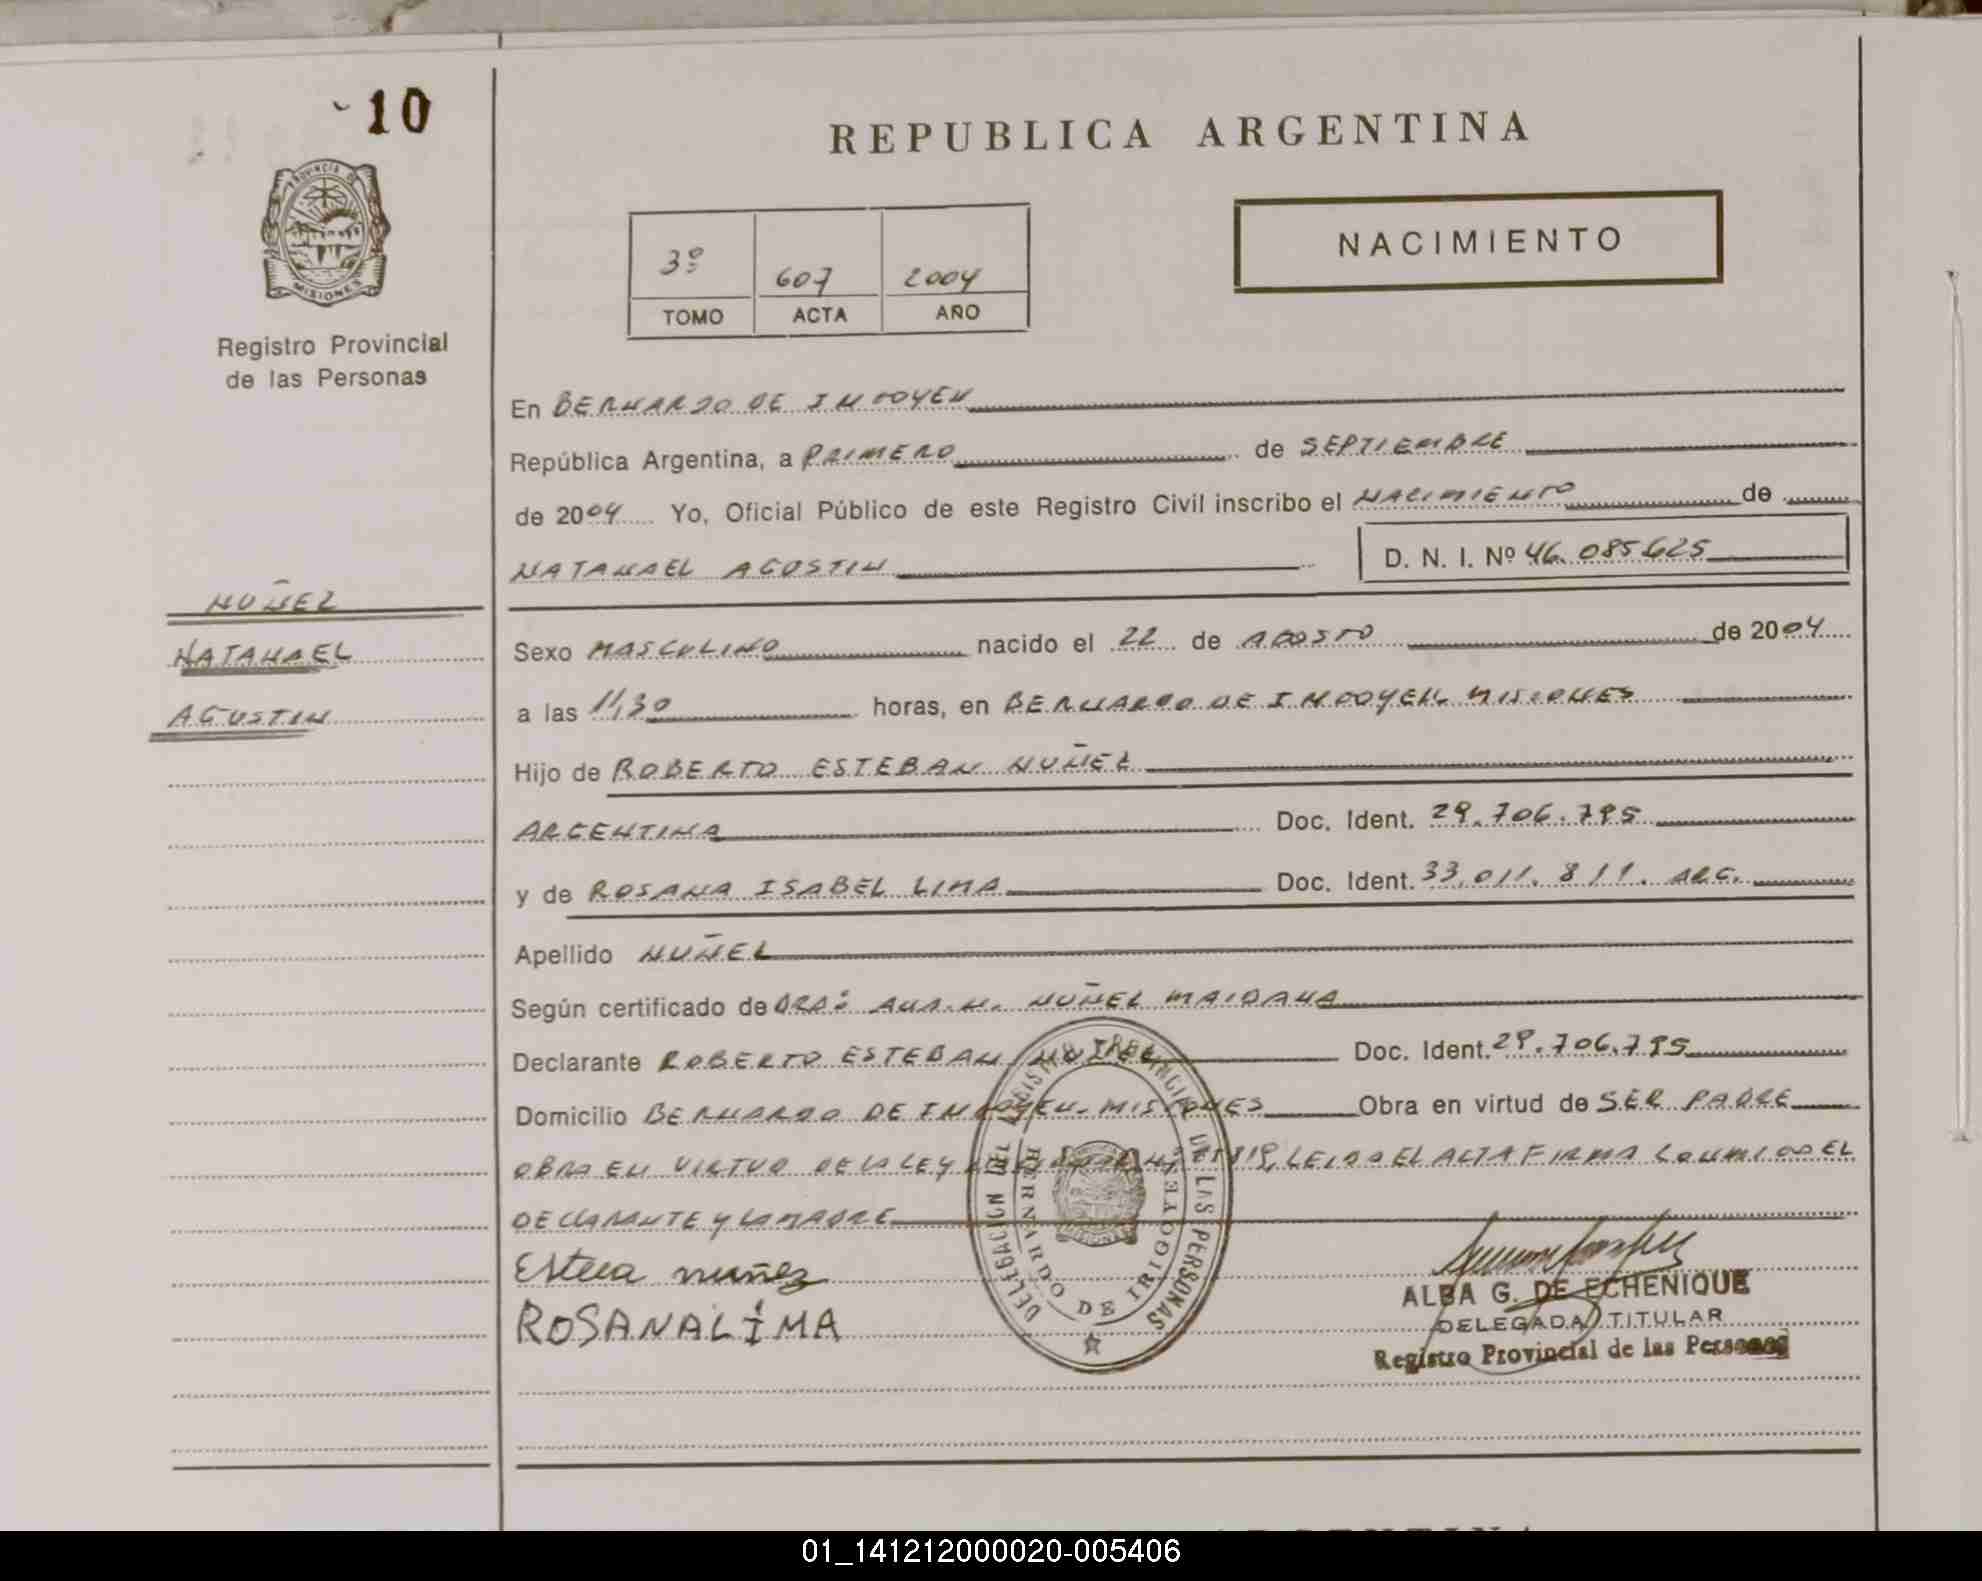 10
PROVINCIA DE
MISIONES
Registro Provincial
de las Personas
REPUBLICA ARGENTINA
3º 607 2004
TOMO ACTA AÑO
NACIMIENTO
En BERNARDO DE IRIGOYEN
República Argentina, a PRIMERO de SEPTIEMBRE
de 2004 Yo, Oficial Público de este Registro Civil inscribo el NACIMIENTO de
NATANAEL AGUSTIN D. N. I. Nº 46.085.625
NUÑEZ
NATANAEL
AGUSTIN
Sexo MASCULINO nacido el 22 de AGOSTO de 2004
a las 11,30 horas, en BERNARDO DE IRIGOYEN. MISIONES
Hijo de ROBERTO ESTEBAN NUÑEZ
ARGENTINA Doc. Ident. 29.706.795
y de ROSANA ISABEL LIMA Doc. Ident. 33.011.811. ARG.
Apellido NUÑEZ
Según certificado de DRA: ANA.N. NUÑEZ MAIDANA
Declarante ROBERTO ESTEBAN NUÑEZ Doc. Ident. 29.706.795
Domicilio BERNARDO DE IRIGOYEN. MISIONES Obra en virtud de SER PADRE
OBRA EN VIRTUD DE LA LEY LEIDA EL ACTA FIRMA CONMIGO EL
DECLARANTE Y LA MADRE
nuñez
ROSANA LIMA
DELEGACION DEL REGISTRO PROVINCIAL DE LAS PERSONAS
BERNARDO DE IRIGOYEN
MISIONES
ALBA G. DE ECHENIQUE
DELEGADA TITULAR
Registro Provincial de las Personas
01_141212000020-005406